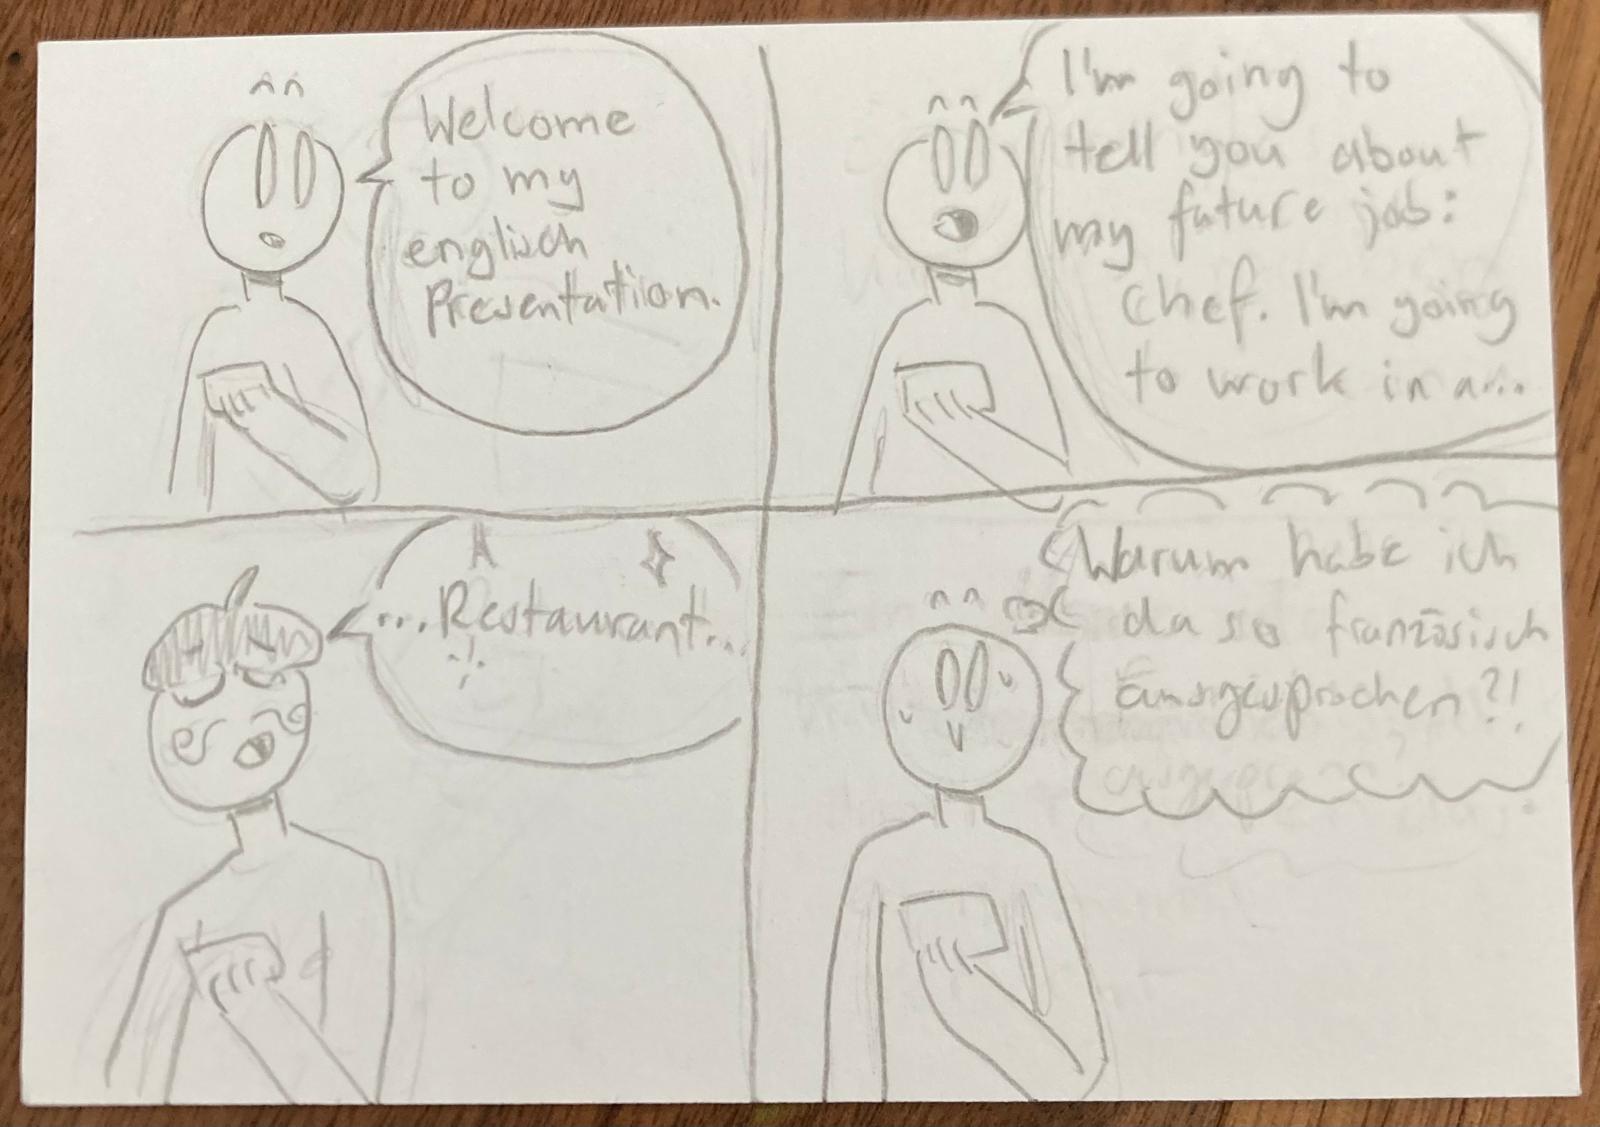 Welcome
to my
englisch
Presentatiion.
I'm going to
tell you about
my future job:
Chef. I'm going
to work in a...
...Restaurant...
Warum habe ich
da so französisch
ausgesprochen?!